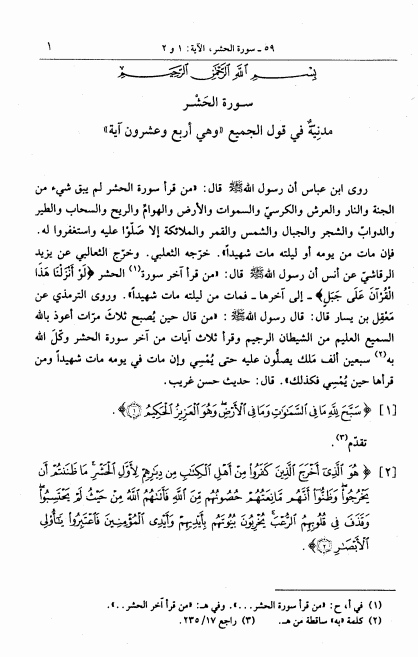 ٥٩ - سورة الحشر، الآية: ١ و ٢
١
بِسْمِ اللَّهِ الرَّحْمَٰنِ الرَّحِيمِ
سورة الحَشْر
مدنِيّةٌ في قول الجميع «وهي أربع وعشرون آية»
روى ابن عباس أن رسول الله ﷺ قال: «من قرأ سورة الحشر لم يبق شيء من
الجنة والنار والعرش والكرسيّ والسموات والأرض والهوامّ والريح والسحاب والطير
والدوابّ والشجر والجبال والشمس والقمر والملائكة إلا صَلّوْا عليه واستغفروا له.
فإن مات من يومه أو ليلته مات شهيداً». خرّجه الثعلبي. وخرّج الثعالبي عن يزيد
الرقاشيّ عن أنس أن رسول الله ﷺ قال: «من قرأ آخر سورة(١) الحشر ﴿لَوْ أَنزَلْنَا هَٰذَا
الْقُرْآنَ عَلَى جَبَلٍ﴾ - إلى آخرها - فمات من ليلته مات شهيداً». وروى الترمذي عن
مَعْقِل بن يسار قال: قال رسول الله ﷺ : «من قال حين يُصبح ثلاث مرّات أعوذ بالله
السميع العليم من الشيطان الرجيم وقرأ ثلاث آيات من آخر سورة الحشر وكّلَ الله
به(٢) سبعين ألف مَلَك يصلّون عليه حتى يُمْسِي وإن مات في يومه مات شهيداً ومن
قرأها حين يُمْسِي فكذلك». قال: حديث حسن غريب.
[١] ﴿سَبَّحَ لِلَّهِ مَا فِي السَّمَٰوَٰتِ وَمَا فِي الْأَرْضِ ۖ وَهُوَ الْعَزِيزُ الْحَكِيمُ ١﴾.
تقدّم(٣).
[٢] ﴿هُوَ الَّذِي أَخْرَجَ الَّذِينَ كَفَرُوا مِنْ أَهْلِ الْكِتَٰبِ مِن دِيَٰرِهِمْ لِأَوَّلِ الْحَشْرِ ۚ مَا ظَنَنتُمْ أَن
يَخْرُجُوا ۖ وَظَنُّوا أَنَّهُم مَّانِعَتُهُمْ حُصُونُهُم مِّنَ اللَّهِ فَأَتَىٰهُمُ اللَّهُ مِنْ حَيْثُ لَمْ يَحْتَسِبُوا ۖ
وَقَذَفَ فِي قُلُوبِهِمُ الرُّعْبَ ۚ يُخْرِبُونَ بُيُوتَهُم بِأَيْدِيهِمْ وَأَيْدِي الْمُؤْمِنِينَ فَاعْتَبِرُوا يَٰٓأُولِي
الْأَبْصَٰرِ ٢﴾.
(١) في أ، ح: «من قرأ سورة الحشر...». وفي هـ: «من قرأ آخر الحشر...».
(٢) كلمة «به» ساقطة من هـ. (٣) راجع ٢٣٥/١٧.